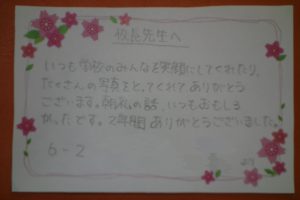 校長先生へ
いつも学校のみんなを笑顔にしてくれたり、
たくさんの写真をとってくれてありがとう
ございます。朝礼の話、いつもおもしろ
かったです。2年間ありがとうございました。
6-2
より